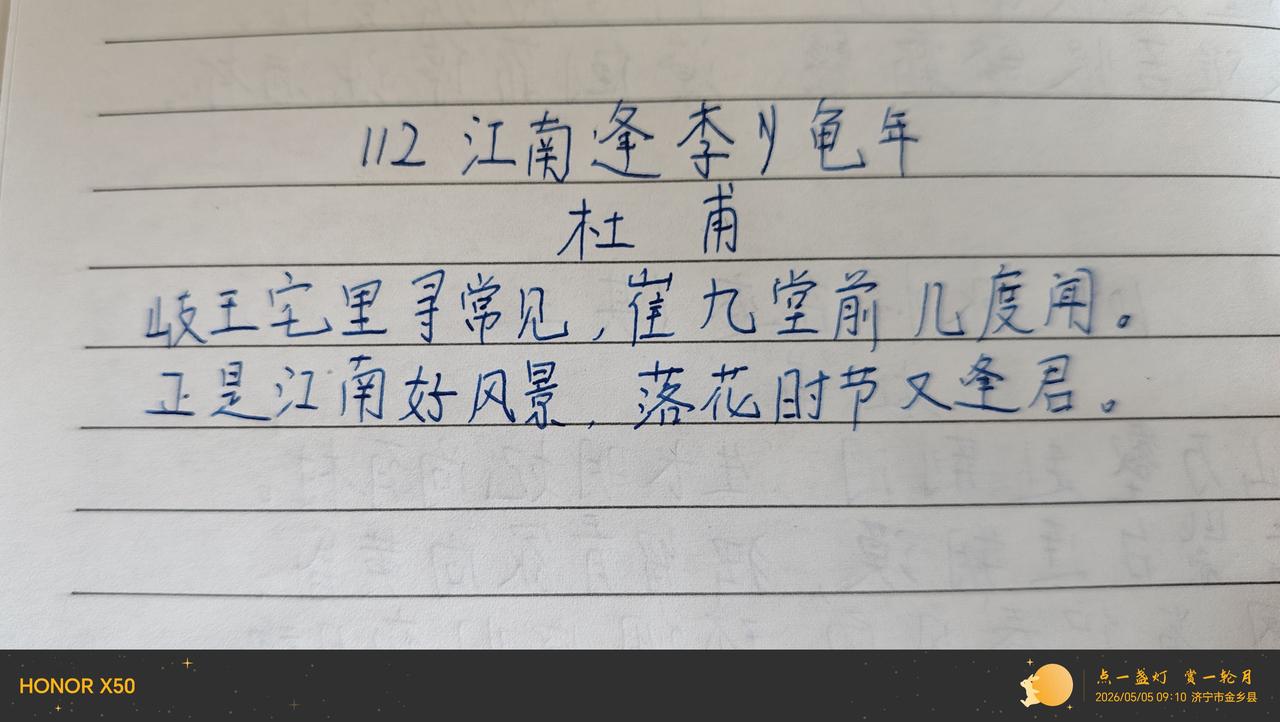 112 江南逢李龟年
杜 甫
岐王宅里寻常见，崔九堂前几度闻。
正是江南好风景，落花时节又逢君。
HONOR X50
点一盏灯 赏一轮月
2026/05/05 09:10 济宁市金乡县